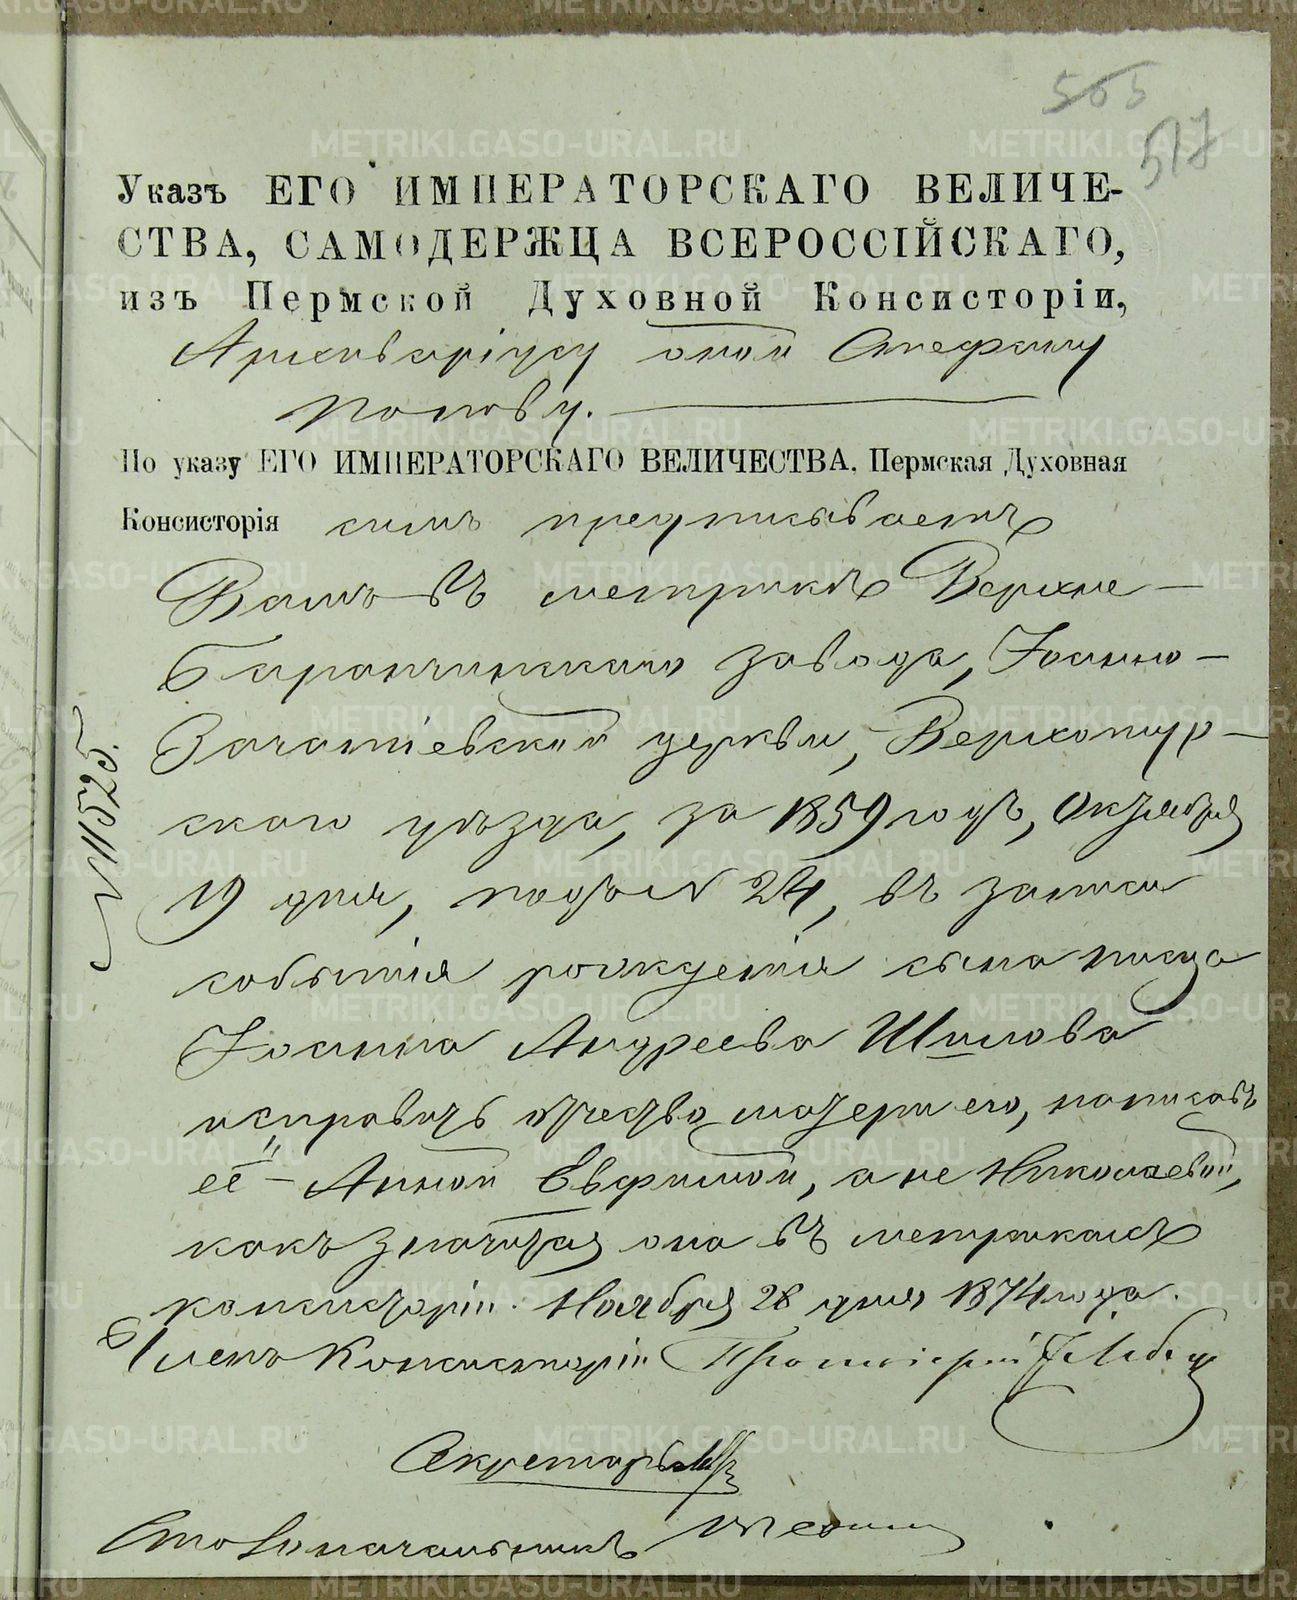 505
517
Указъ ЕГО ИМПЕРАТОРСКАГО ВЕЛИЧЕ-
СТВА, САМОДЕРЖЦА ВСЕРОССІЙСКАГО,
изъ Пермской Духовной Консисторіи,
Архиваріусу оной Стефану
Попову.
По указу ЕГО ИМПЕРАТОРСКАГО ВЕЛИЧЕСТВА, Пермская Духовная
Консисторія симъ предписываетъ
Вамъ въ метрикѣ Верхне-
Баранчинскаго завода, Іоанно-
Зачатіевской церкви, Верхотур-
скаго уѣзда, за 1859 годъ, Октября
19 дня, подъ N 24, въ записи
событія рожденія сына писца
Іоанна Андреева Шилова
исправить отчество матери его, написавъ
её - Анной Евфимой, а не Николаевой,
какъ значится она въ метрикахъ
консисторіи. Ноября 28 дня 1874 года.
N 11525.
Членъ Консисторіи Протоіерей
Секретарь
Столоначальникъ
METRIKI.GASO-URAL.RU